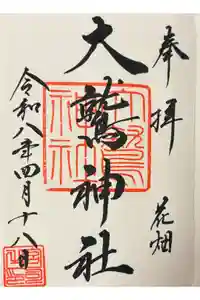 奉拝
花畑
大鷲神社
令和八年四月十八日